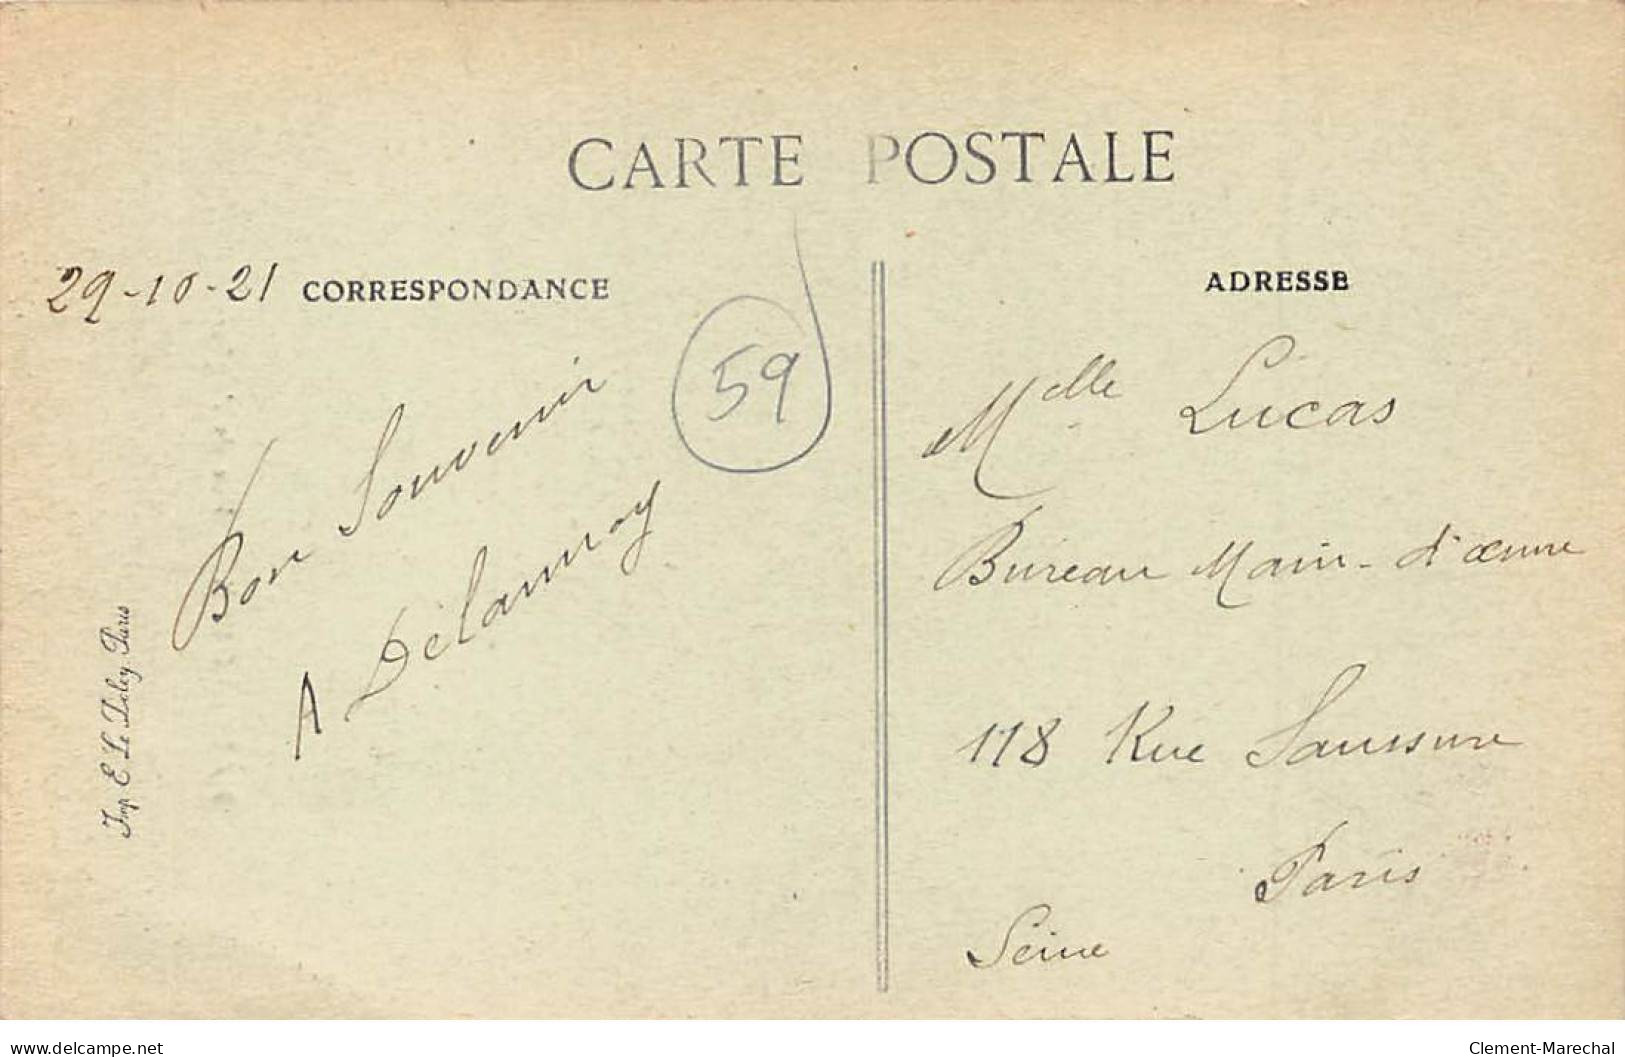 CARTE POSTALE
29-10-21 CORRESPONDANCE
59
Bon Souvenir
A Delannoy
Imp. E. Le Deley, Paris
ADRESSE
Melle Lucas
Bureau Main-d'œuvre
118 Rue Saussure
Paris
Seine
delcampe.net
Clement-Marechal